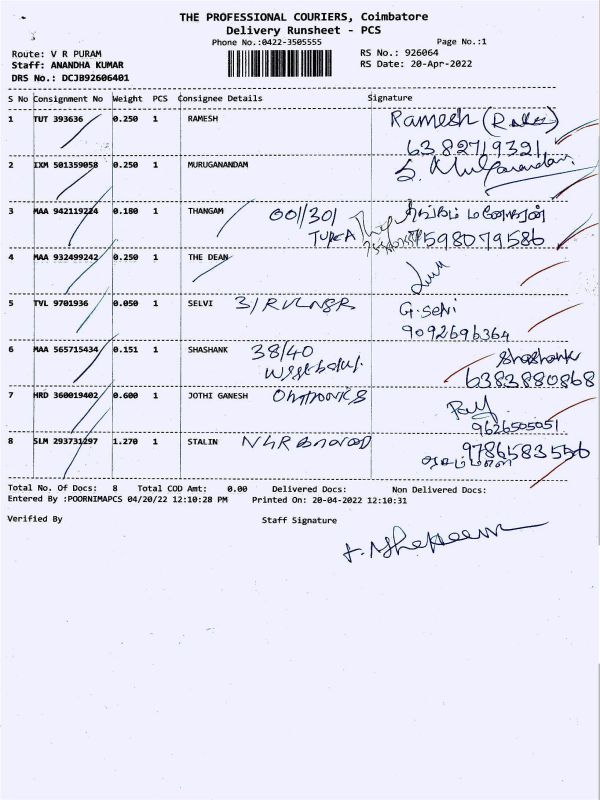 THE PROFESSIONAL COURIERS, Coimbatore
Delivery Runsheet - PCS
Phone No.:0422-3505555 Page No.:1
Route: V R PURAM RS No.: 926064
Staff: ANANDHA KUMAR RS Date: 20-Apr-2022
DRS No.: DCJB92606401
S No Consignment No Weight PCS Consignee Details Signature
1 TUT 393636 0.250 1 RAMESH Ramesh
6382719321
2 IXM 501359058 0.250 1 MURUGANANDAM
3 MAA 942119224 0.180 1 THANGAM 001/301
7598079586
4 MAA 932499242 0.250 1 THE DEAN
5 TVL 9701936 0.050 1 SELVI G. Selvi
9092696364
6 MAA 565715434 0.151 1 SHASHANK 38/40 Shashank
6383880868
7 HRD 360019402 0.600 1 JOTHI GANESH
9626505051
8 SLM 293731297 1.270 1 STALIN 9786583556
Total No. Of Docs: 8 Total COD Amt: 0.00 Delivered Docs: Non Delivered Docs:
Entered By :POORNIMAPCS 04/20/22 12:10:28 PM Printed On: 20-04-2022 12:10:31
Verified By Staff Signature